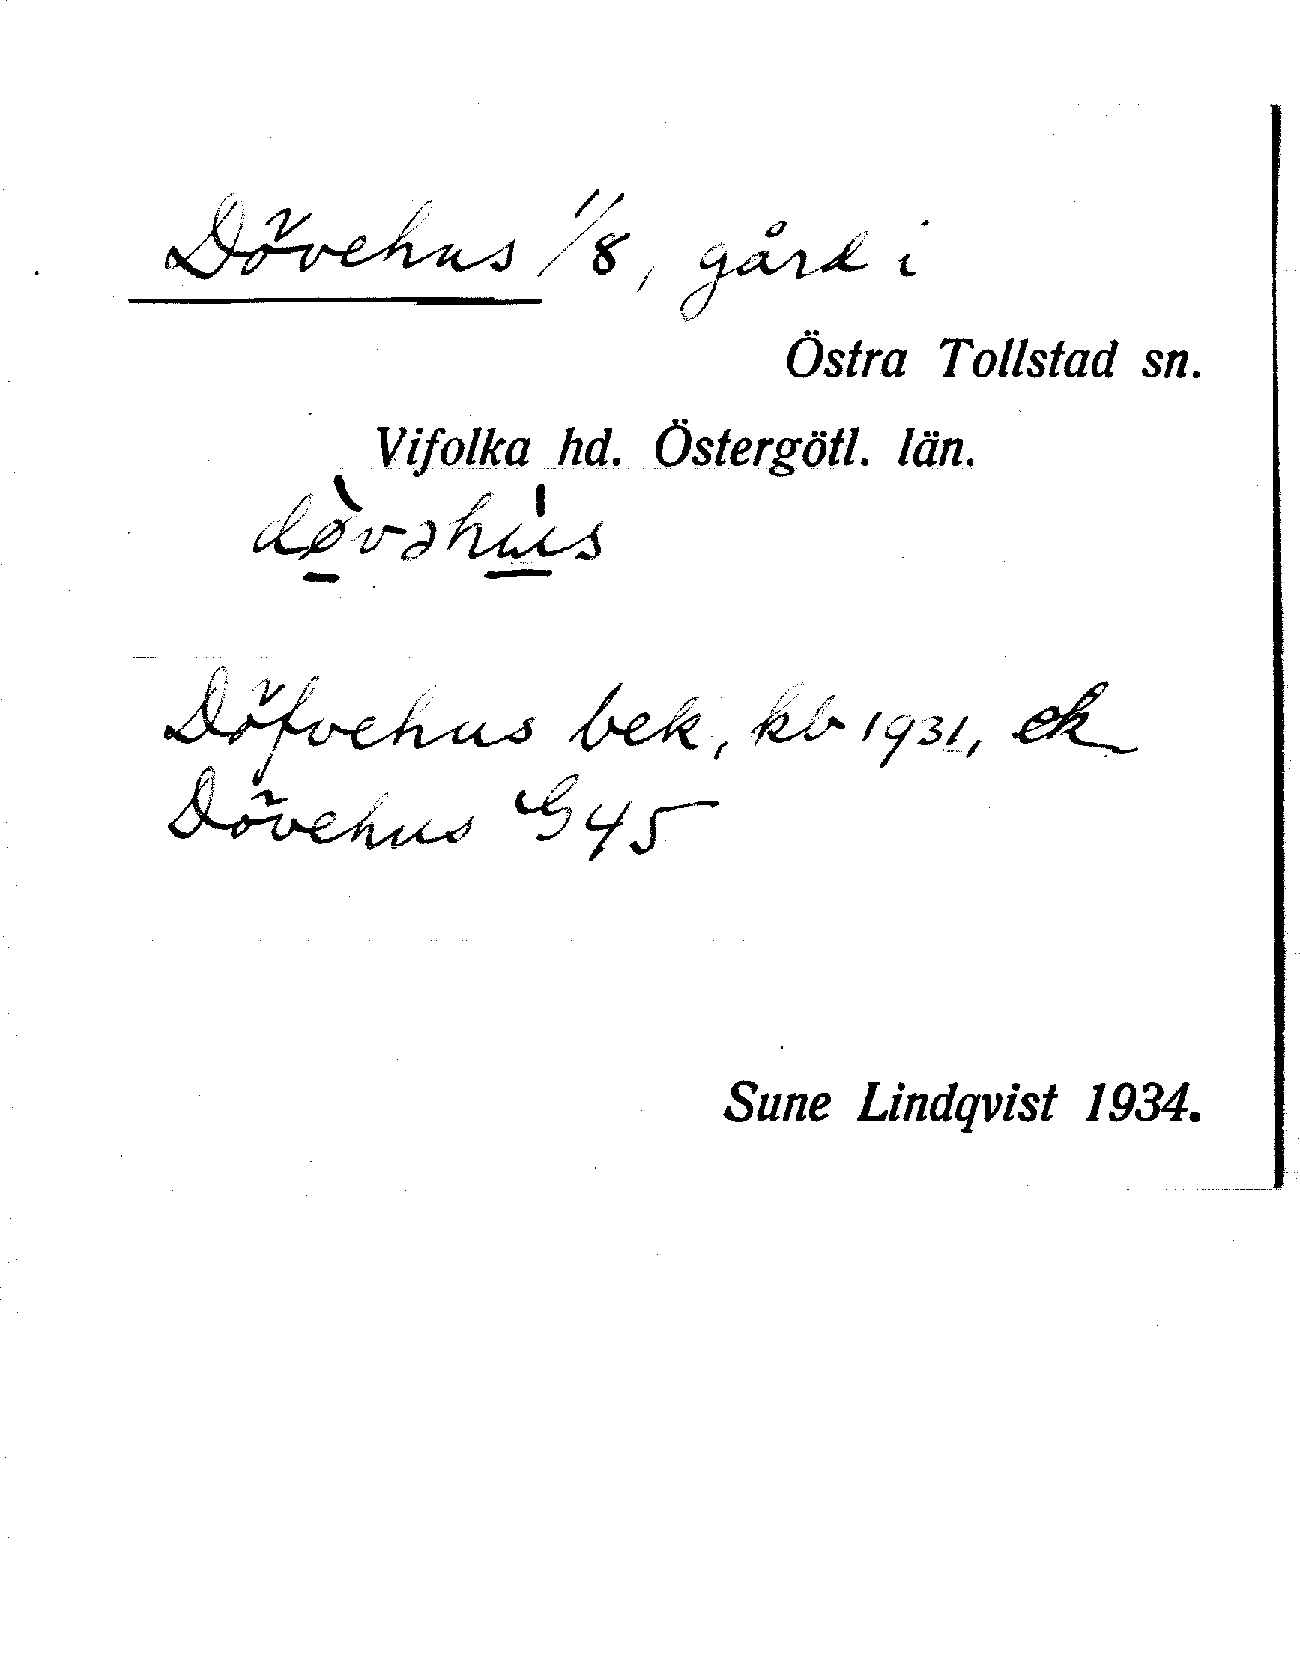 Dövehus 1/8, gård i
Östra Tollstad sn.
Vifolka hd. Östergötl. län.
dø̀vəhu̍s
Döfvehus bek, kb 1931, ek
Dövehus G45
Sune Lindqvist 1934.